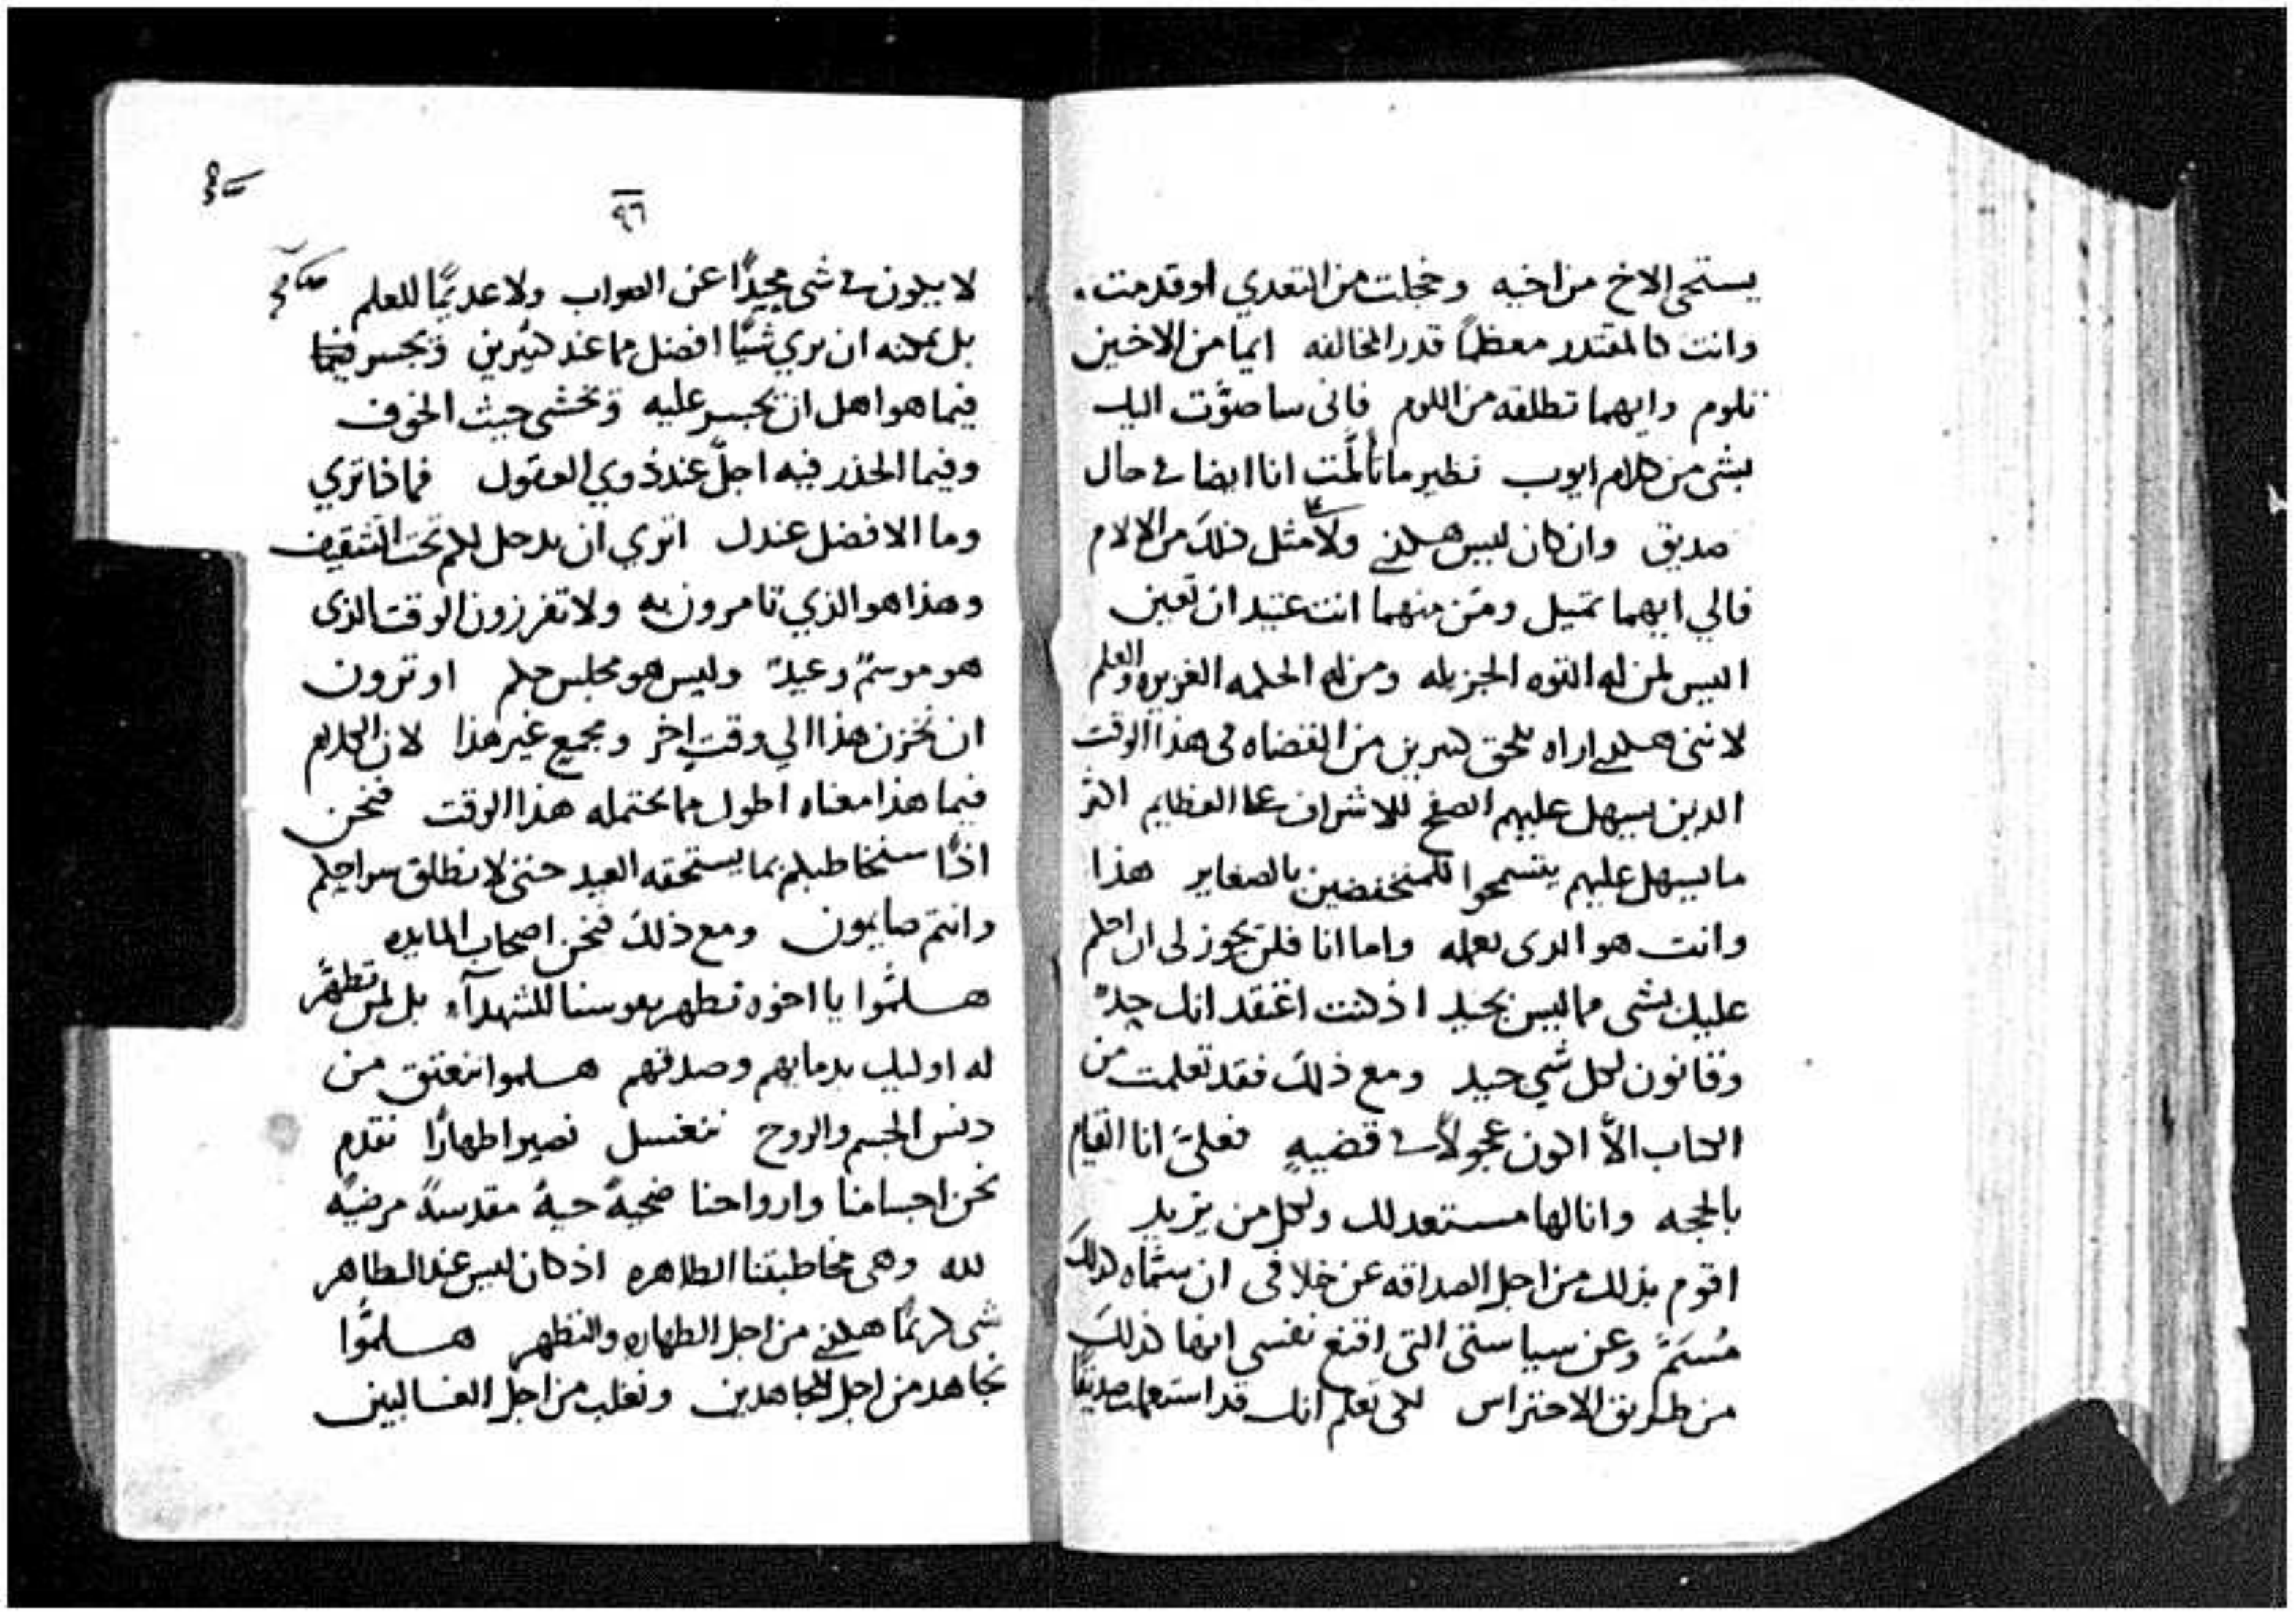 يستحى الاخ من اخيه وخجلت من التعدي لو قدمت.
وانت كالمقتدر معظماً قدر المخالفه ايما من الاخين
تلوم وايهما تطلقه من اللوم فانى ساصوّت اليك
بشى من كلام ايوب نظير ما تألمّت انا ايضا فى حال
صديق وان كان ليس هكذى ولا مثل ذلك من الالام
فالي ايهما تميل ومَن منهما انت عتيد ان تعين
اليس لمن له القوه الجزيله ومن له الحكمه الغزيره والعلم
لاننى هكذى اراه يلحق كثيرين من القضاه فى هذا الوقت
الدين يسهل عليهم الصفح للاشراف عما العظايم اكثر
ما يسهل عليهم يتسمحوا للمنخفضين بالصغاير هذا
وانت هو الدى يعمله واما انا فلن يجوز لى ان احكم
عليك بشى مما ليس بجيد اذ كنت اعتقد انك حدٌ
وقانون لكل شي جيد ومع ذلك فقد تعلمت من
الكتاب الاّ اكون عجولاً فى قضيهٍ فعليّ انا القيام
بالحجه وانا لها مستعد لك ولكل من يريد
اقوم بذلك من اجل الصداقه عن خلافى ان سمّاه كذلك
مُسَمّ وعن سياستى التى اقنع نفسى انها كذلك
من طريق الاحتراس لكى تعلم انك قد استعملت صديقًا
٩٦
لا يكون فى شى مجيدًا عن الصواب ولا عديمًا للعلم
بل يمكنه ان يري شيًا افضل مما عند كثيرين وَيجسر
فيما هو اهل ان يجسر عليه وَيخشى حيث الخوف
وفيما الحذر فيه اجلّ عند ذوي العقول فماذا تري
وما الافضل عندك اتري ان يدخل لكم تحت التثقيف
وهذا هو الذي تامرون به ولا تفرزون الوقت الذى
هو موسمٌ وعيدٌ وليس هو مجلس حكم او ترون
ان نخزن هذا الي وقتٍ اخر ومجمع غير هذا لان الكلام
فيما هذا معناه اطول مما يحتمله هذا الوقت فنحن
اذًا سنخاطبكم بما يستحقه العيد حتى لا نطلق سراحكم
وانتم صايمون ومع ذلك فنحن اصحاب المايده
هـلمّوا يا اخوه نطهر نفوسنا للشهدآء بل لمن تطهّر
له اوليك بدمايهم وصدقهم هـلموا نعتق من
دنس الجسم والروح نغتسل نصير اطهارًا نقدم
نحن اجسامنا وارواحنا ضحيهً حيهً مقدسهً مرضيه
لله وهى مخاطبتنا الطاهره اذ كان ليس عند الطاهر
شى كريمًا هكذى من اجل الطهاره والتطهر هـلمّوا
نجاهد من اجل المجاهدين ونغلب من اجل الغـالبين